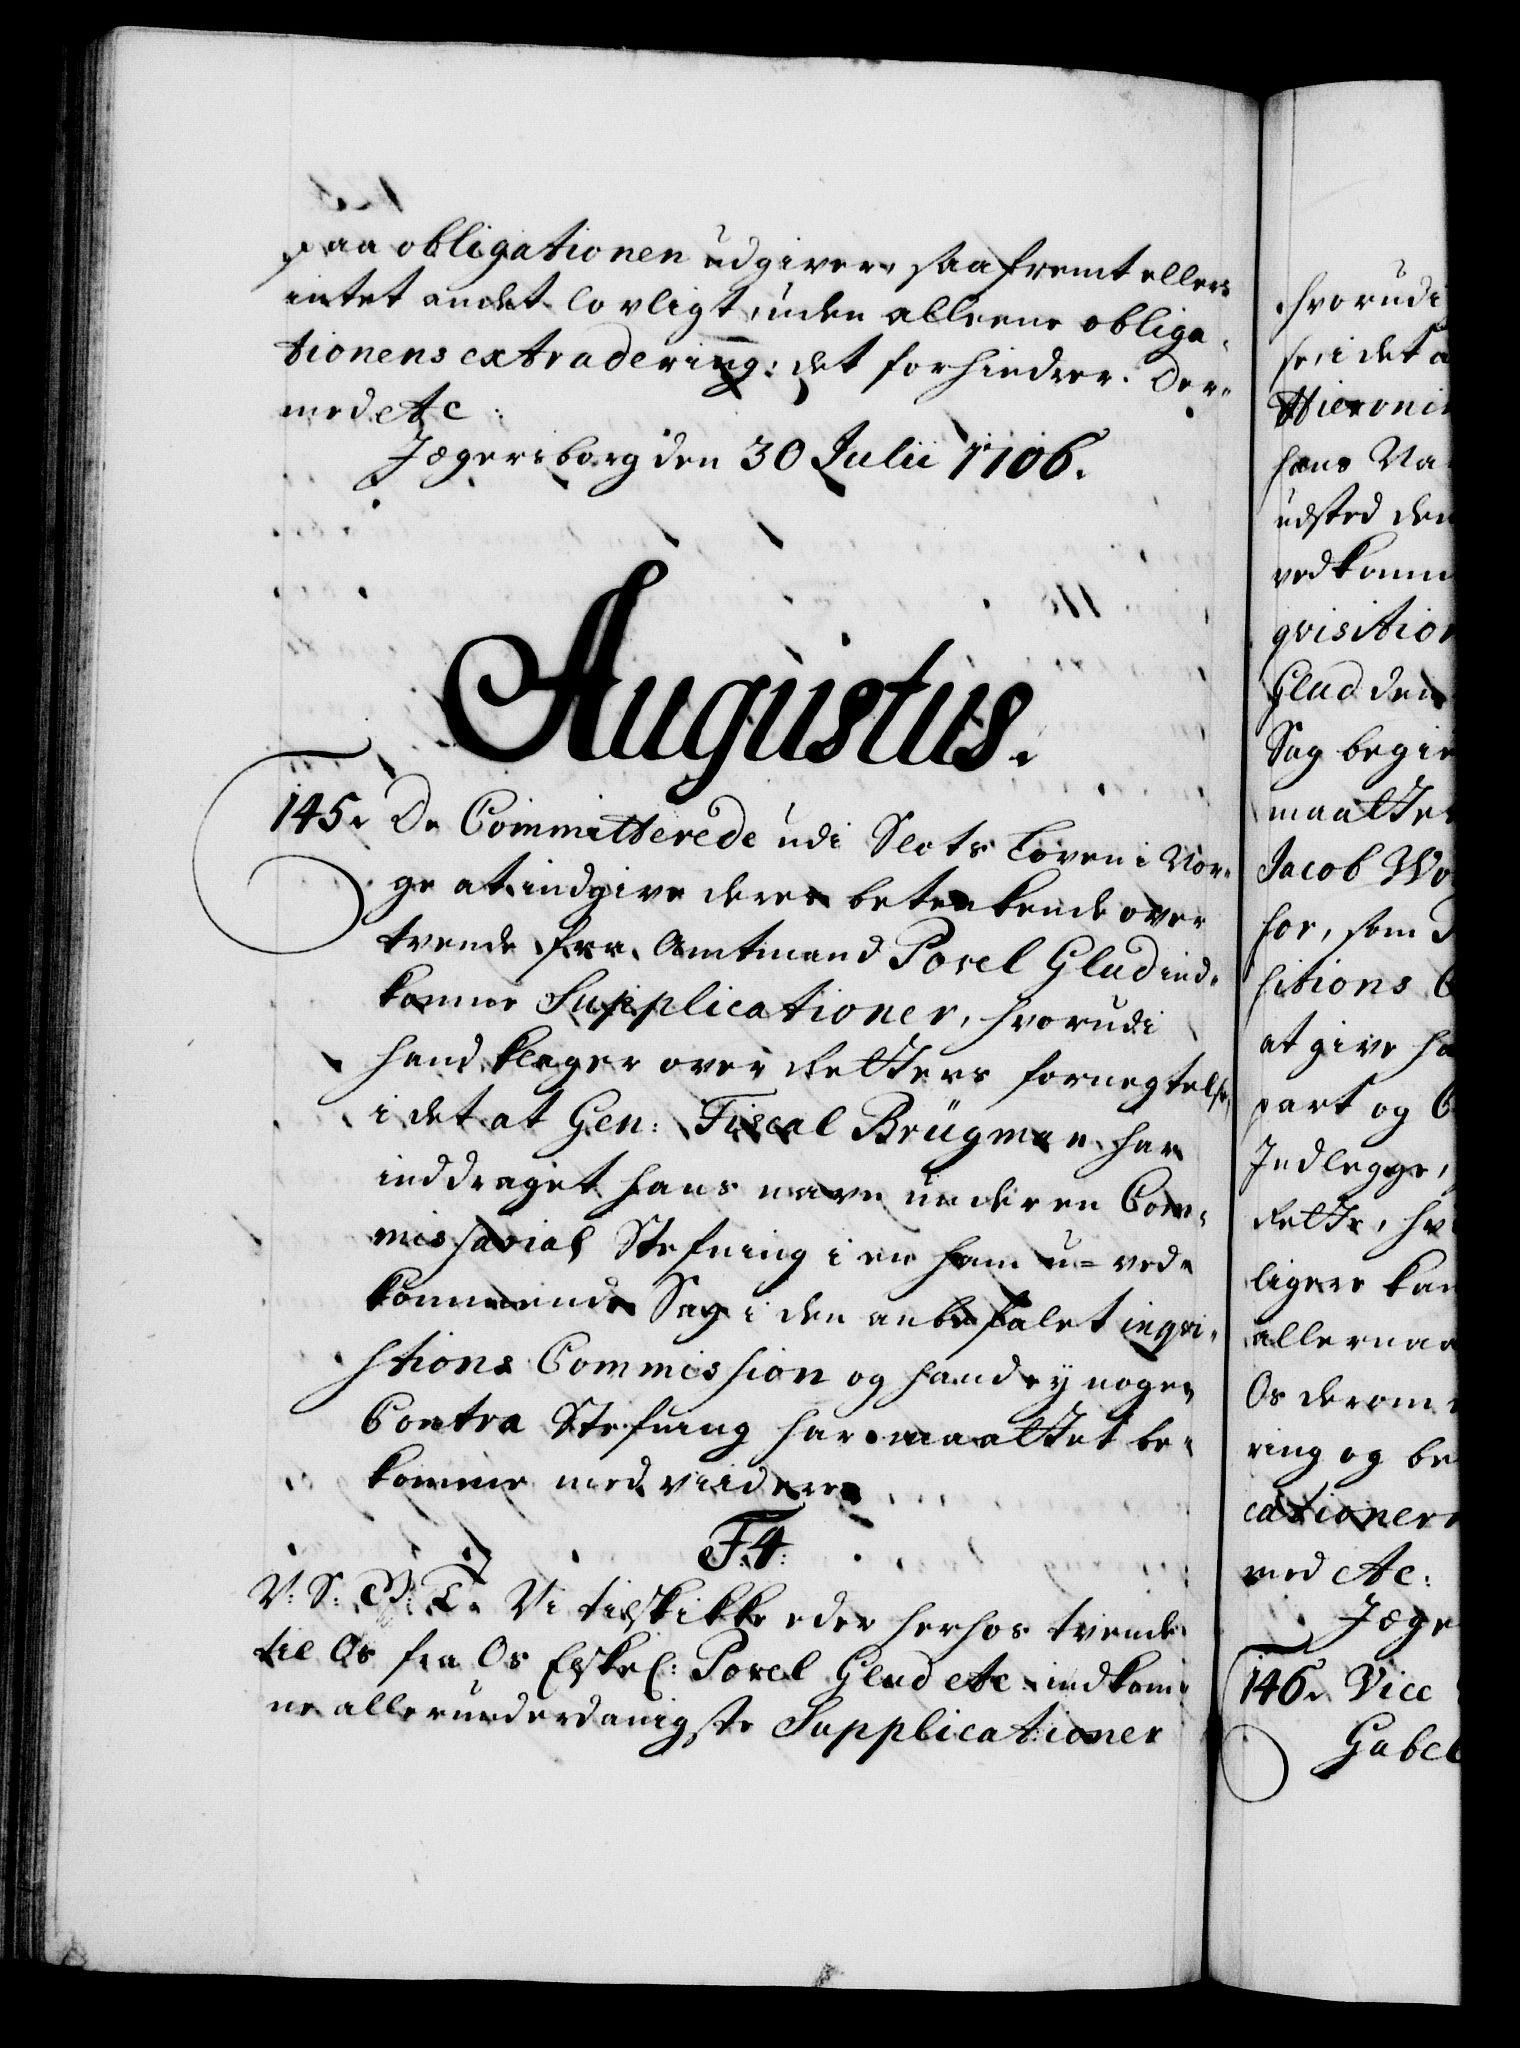 paa obligationen udgiver, saafremt ellers
intet andet lovligt, uden alleene obliga-
tionens extradering: det forhindrer. Der-
med etc:
Jægersborg den 30 Julii 1706.
Augustus.
145. De Committerede udi Slots Loven i Nor-
ge at indgive deres betenkende over
tvende fra Amtmand Povel Glud ind-
komne Supplicationer, hvorudi
hand klager over Rettens fornegtelse,
i det at Gen: Fiscal Brügman har
inddraget hans navn under en Com-
missarial Stefning i en ham u-ved-
kommende Sag i den anbefalet inqvi-
sitions Commission og hand ey nogen
Contra Stefning har maattet be-
komme med viidere
F. 4.
V: S: G: T. Vi tilskikke eder herhos tvende
til Os fra Os Elskel: Povel Glud etc indkom-
ne allerunderdanigste Supplicationer
hvorudi
se, i det a
Hieronim
hans Na
udsted den
vedkomm
qvisition
Glud den
Sag begie
maatte
Jacob Wo
for, som
sitions C
at give ha
part og C
Indlegge,
Rette, hv
ligere kan
allernaa
Os derom
ring og be
cationer
med etc:
Jæge
146. Vice
Gabel